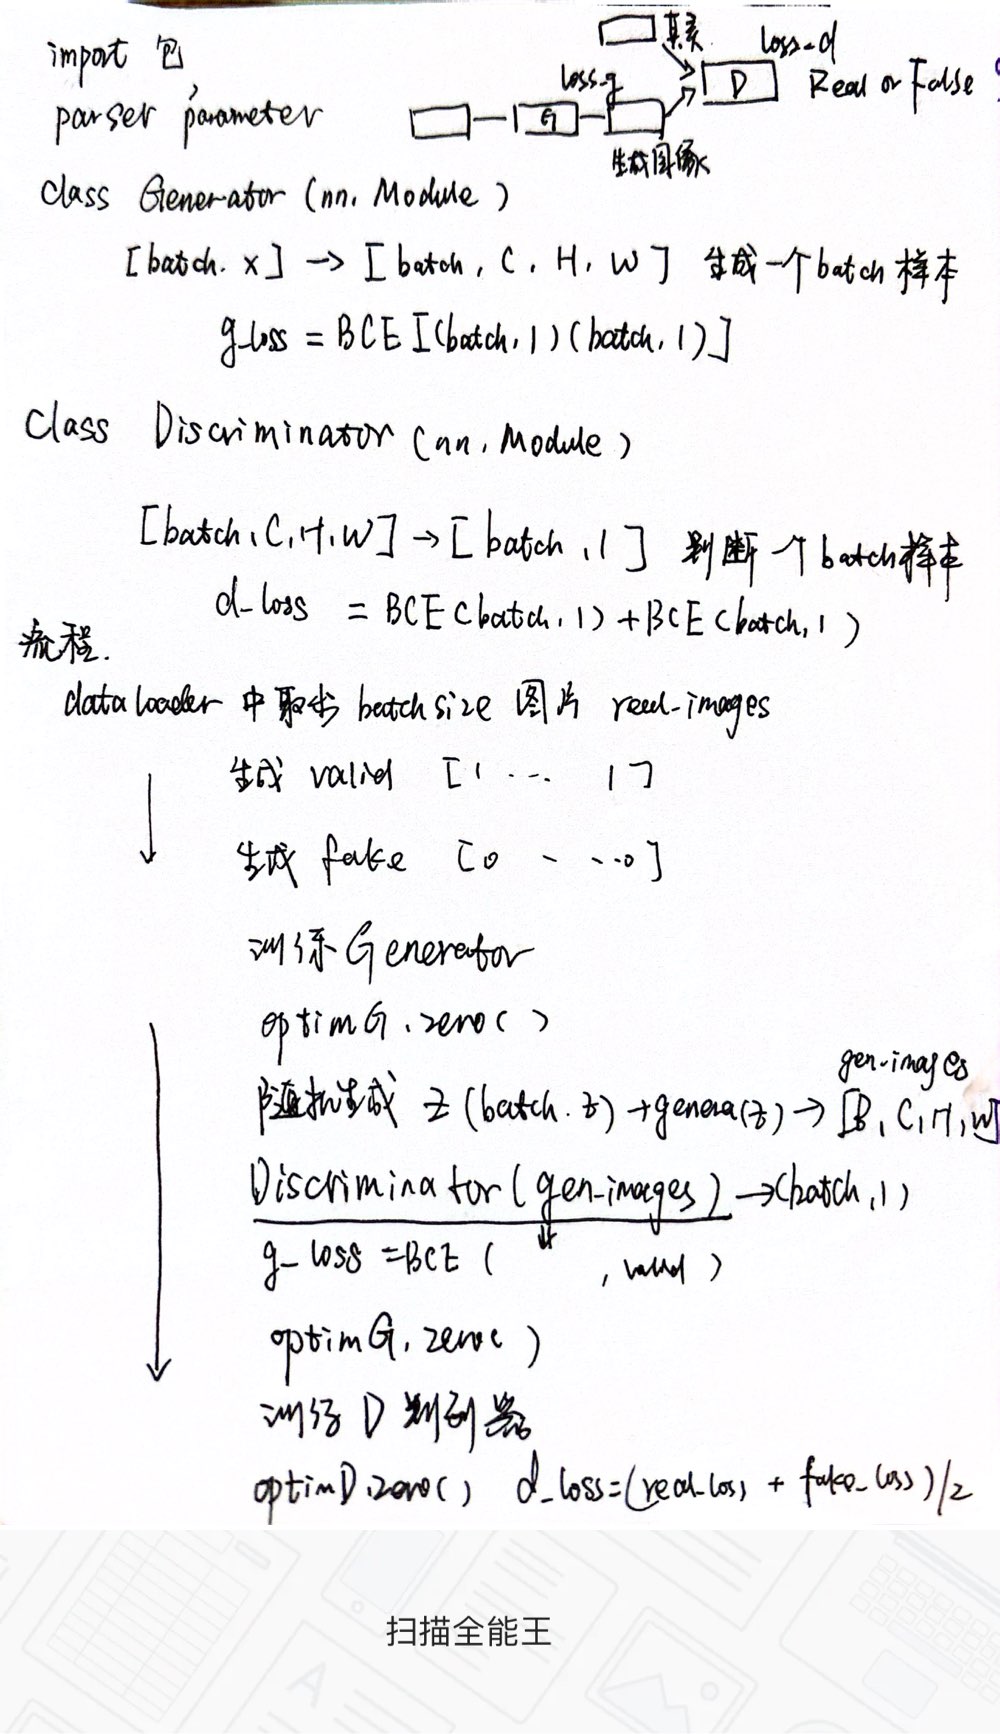 import 包
真实
loss-d
D
Real or False
loss-g
parser parameter
G
生成图像
class Generator (nn. Module)
[batch. x] → [batch, C, H, W] 生成一个batch样本
g_loss = BCE[(batch, 1)(batch, 1)]
Class Discriminator (nn. Module)
[batch, C, H, W] → [batch, 1] 判断一个batch样本
d_loss = BCE(batch, 1) + BCE(batch, 1)
流程.
dataloader 中取出 batchsize 图片 real-images
生成 valid [1 ... 1]
生成 fake [0 - ...0]
训练Generator
optimG.zero()
gen-images
随机生成 z (batch. z) → genera(z) → [B, C, H, W]
Discriminator(gen-images) → (batch, 1)
g_loss = BCE ( , valid )
optimG.zero()
训练 D 判别器
optimD.zero() d_loss=(real_loss + fake_loss)/2
扫描全能王